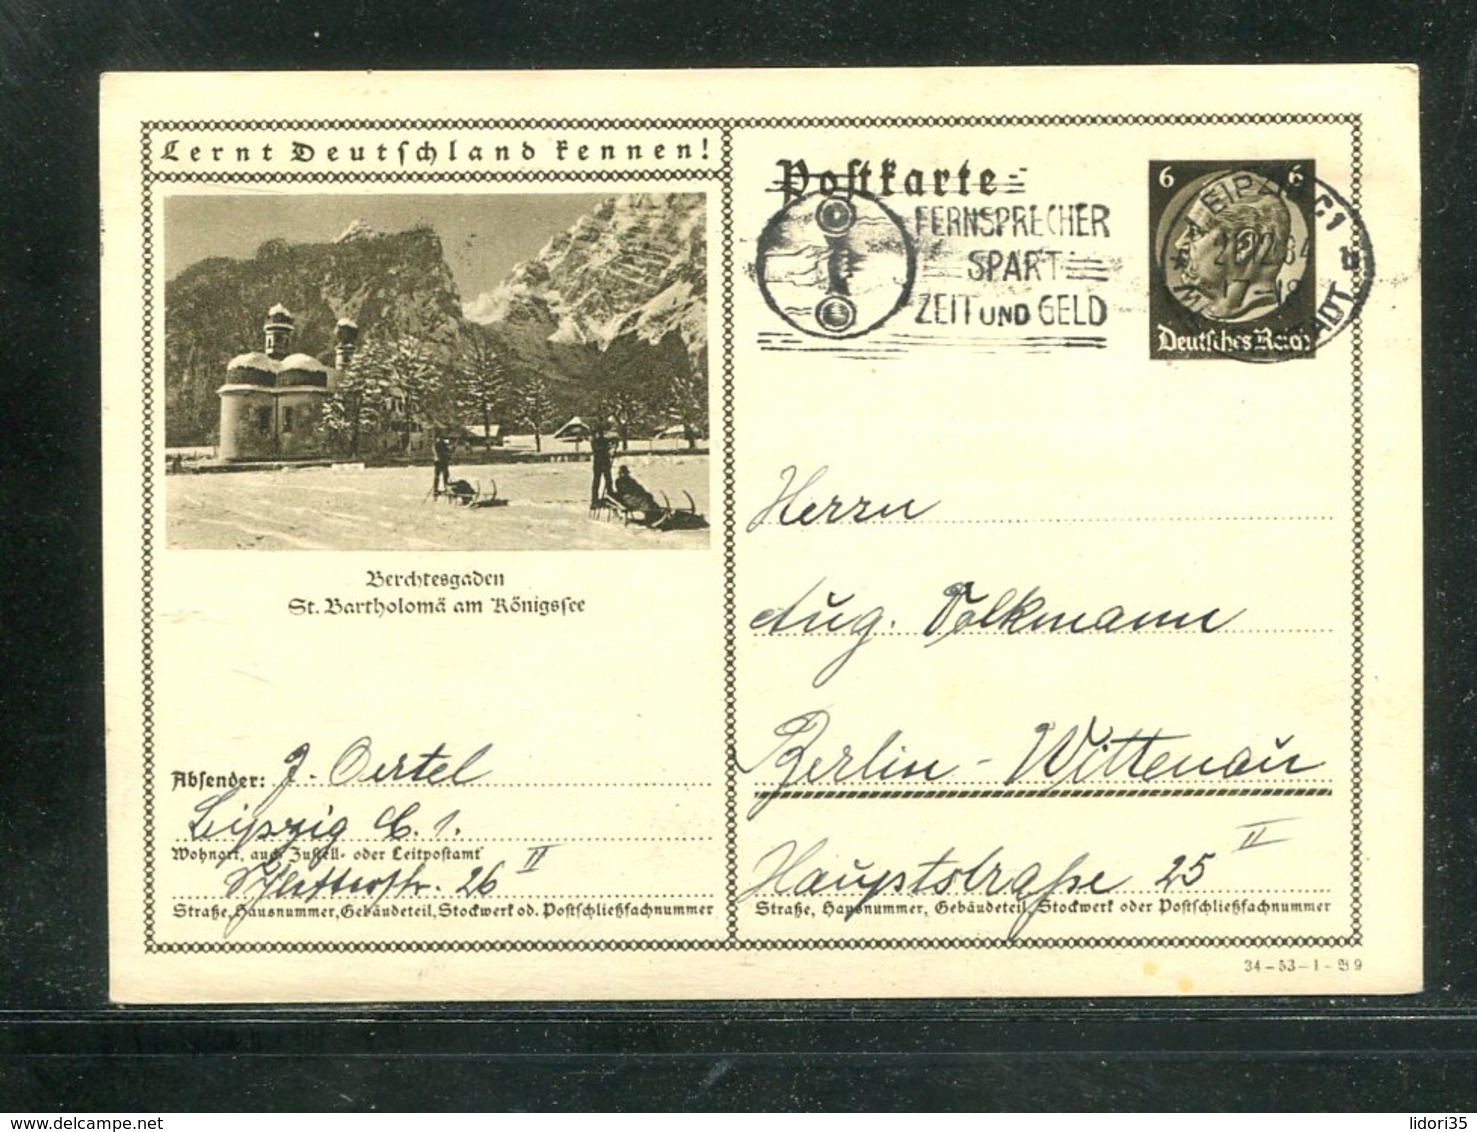 Lernt Deutschland kennen!
Berchtesgaden
St. Bartholomä am Königssee
Absender: J. Oertel
Leipzig C. 1.
Wohnort, auch Zustell- oder Leitpostamt
26 II
Straße, Hausnummer, Gebäudeteil, Stockwerk od. Postschließfachnummer
Postkarte
FERNSPRECHER
SPART
ZEIT UND GELD
6 6
LEIPZIG C1
17-18
Deutsches Reich
Herrn
Aug. Volkmann
Berlin - Wittenau
Hauptstraße 25 II
Straße, Hausnummer, Gebäudeteil, Stockwerk oder Postschließfachnummer
34-53-1-B9
lidori35